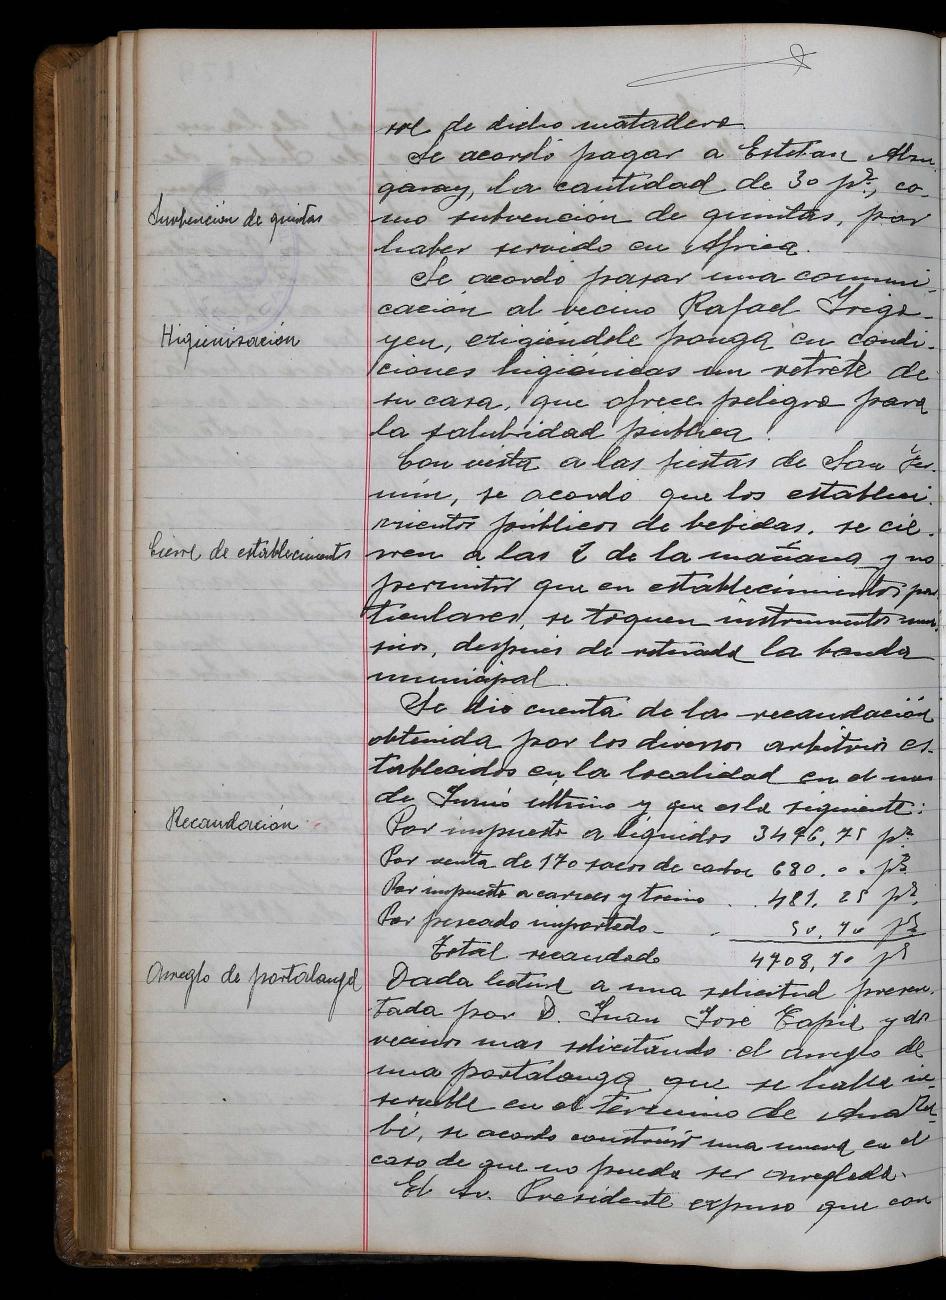 sol de dicho matadero.
Se acordó pagar a Esteban
garay, la cantidad de 30 pts, co-
Subención de quintas
mo subvención de quintas, por
haber servido en Africa.
Se acordó pasar una comuni-
cación al vecino Rafael Irigo-
Higienización
yen, exigiéndole ponga en condi-
ciones higiénicas un retrete de
su casa, que ofrece peligro para
la salubridad pública.
Con vista a las fiestas de San Fer-
mín, se acordó que los estableci-
mientos públicos de bebidas, se cie-
Cierre de establecimients
rren a las 2 de la mañana y no
permitir que en establecimientos par
ticulares, se toquen instrumentos mu-
sicos, despues de retirada la banda
municipal.
Se dió cuenta de la recaudación
obtenida por los diversos arbitrios es-
tablecidos en la localidad en el mes
de Junio último y que es la siguiente:
Recaudación
Por impuesto a líquidos 3496,75 pts
Por venta de 170 sacos de carbon 680.0.0 pts
Por impuesto a carnes y tocino 481,25 pts
Por pescado importado 50,70 pts
Total recaudado 4708,70 pts
Arreglo de portalanga
Dada lectura a una solicitud presen-
tada por D. Juan Jose Tapiz y dos
vecinos mas solicitando el arreglo de
una portalanga que se halla in-
servible en el termino de
bi, se acordó construir una nueva en el
caso de que no pueda ser arreglada.
El Sr. Presidente expuso que con